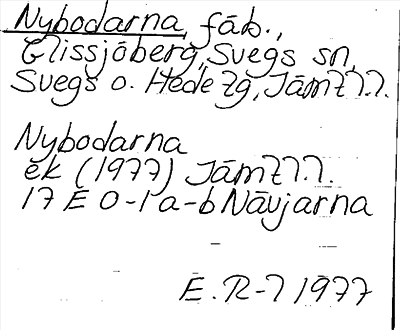 Nybodarna, fäb.,
Glissjöberg, Svegs sn,
Svegs o. Hede tg, Jämtl.l.
Nybodarna
ek (1977) Jämtl.l.
17 E 0-1 a-b Nävjarna
E. R-l 1977